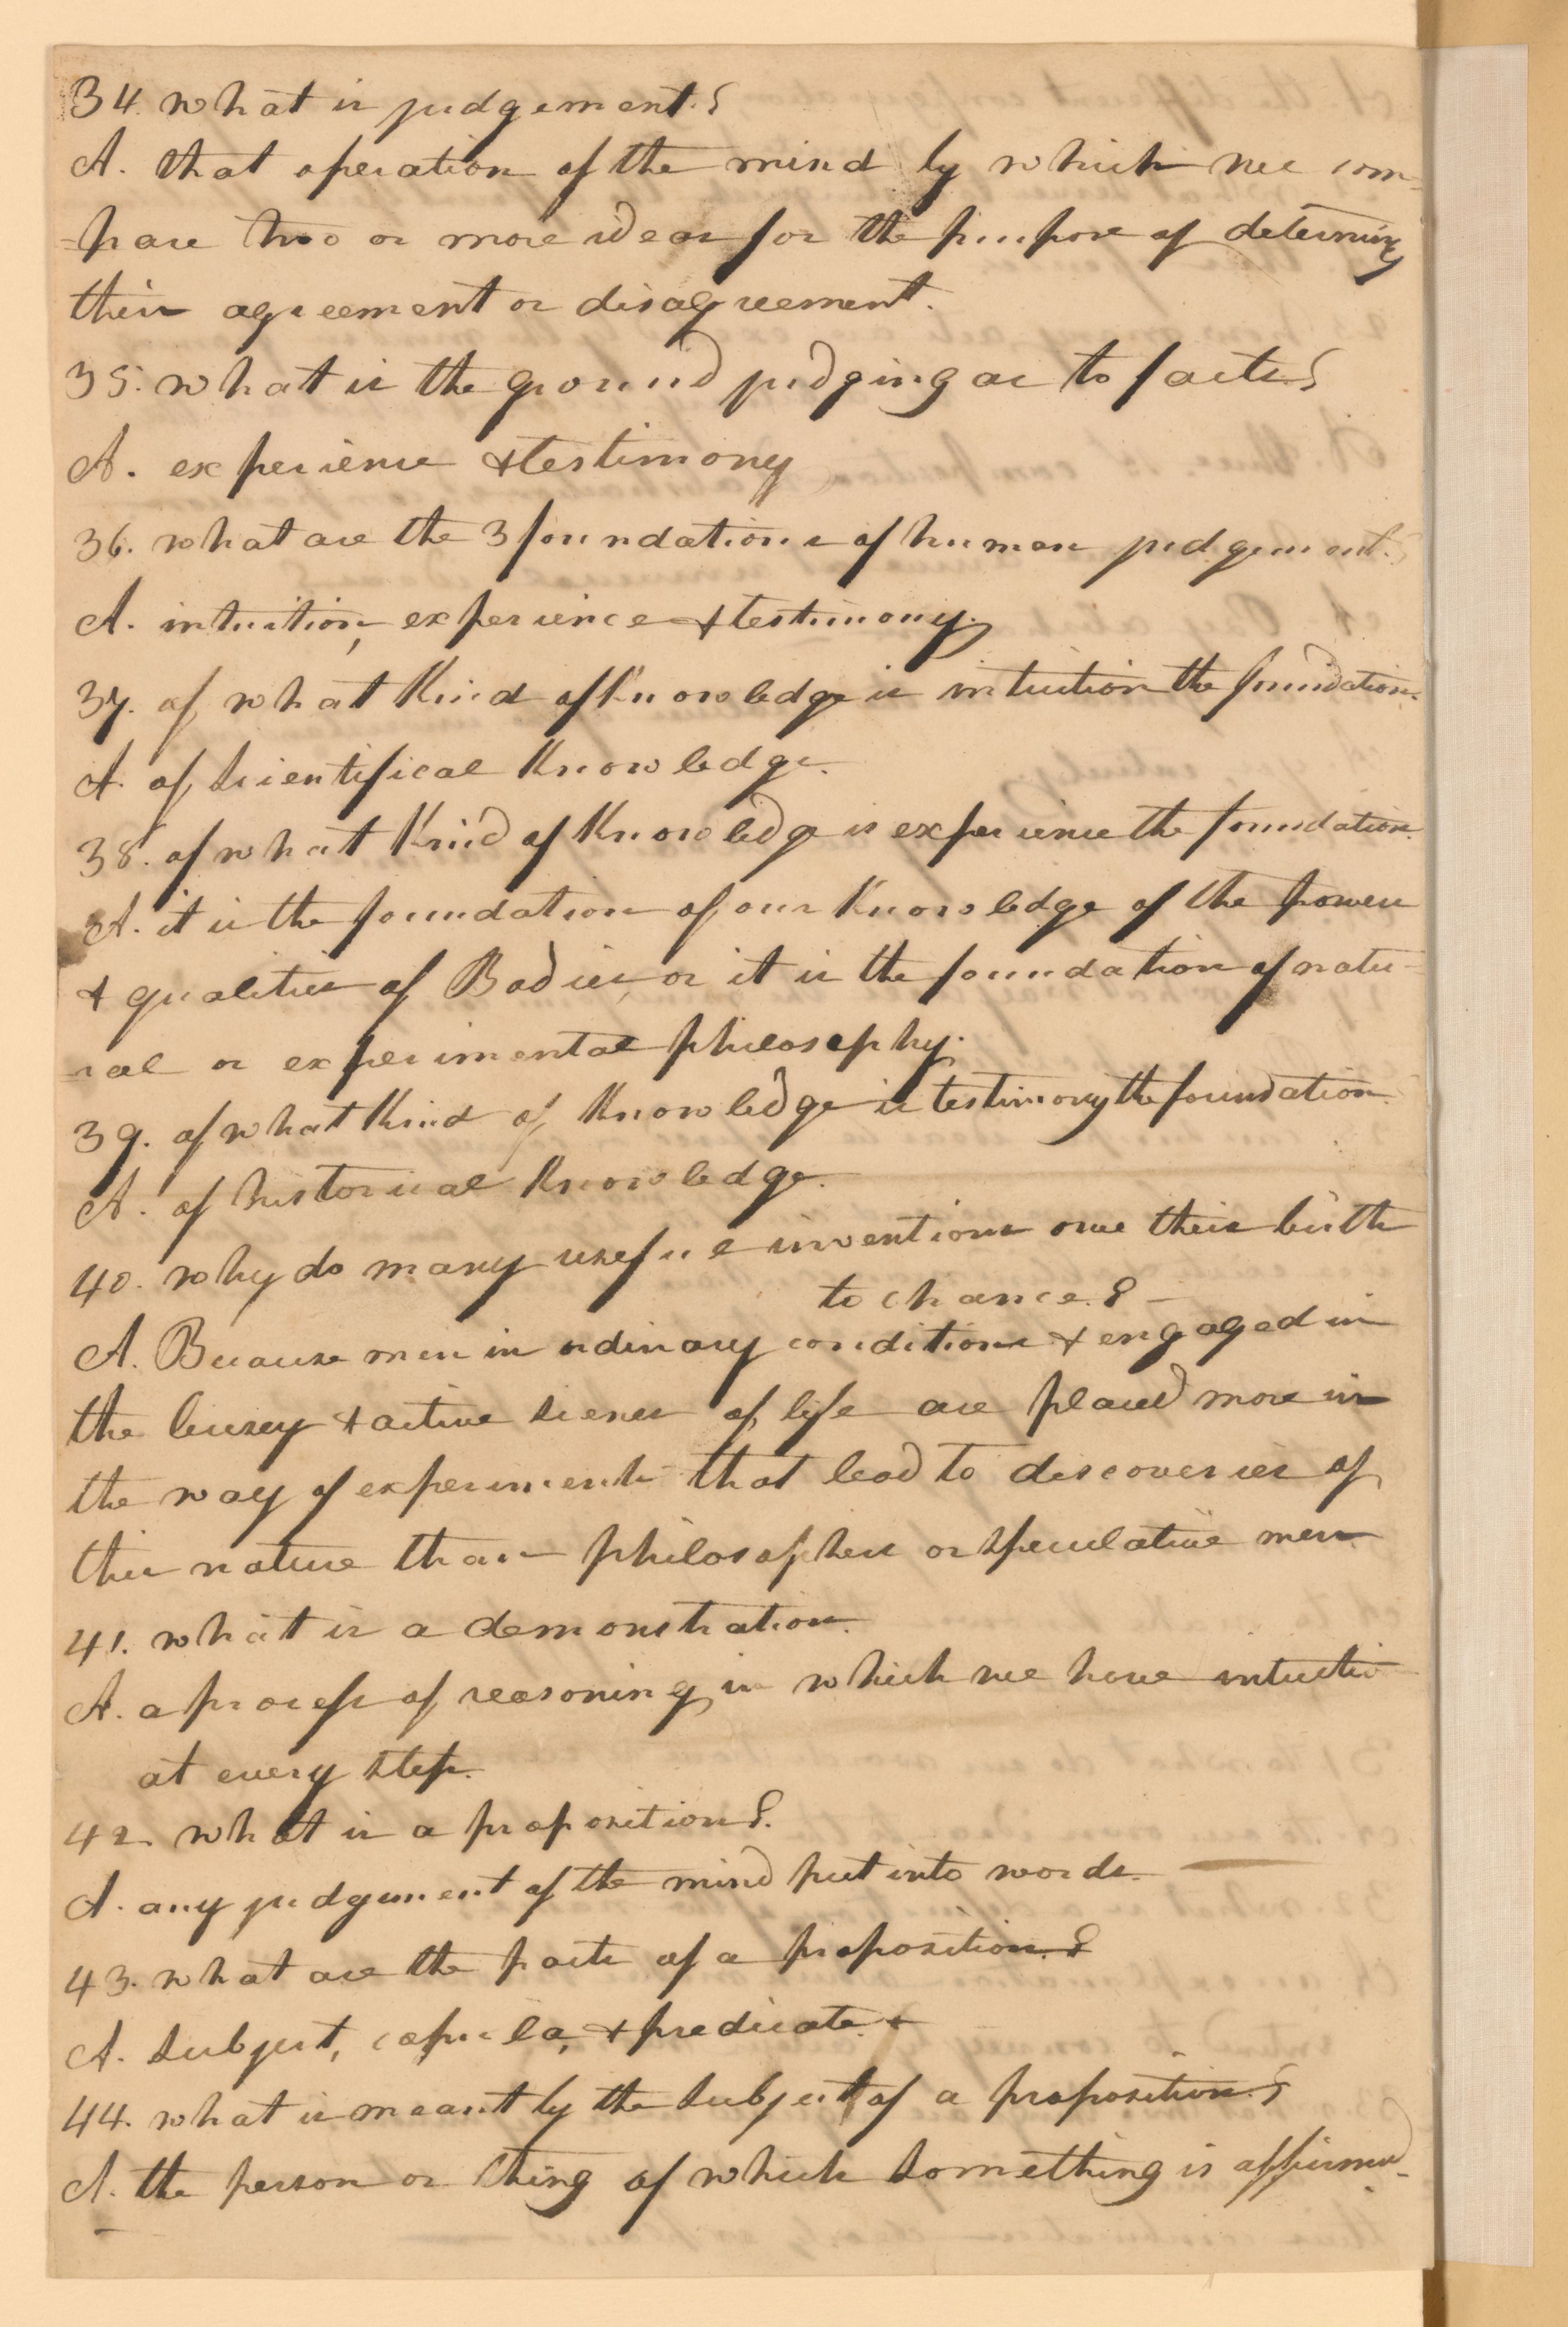 34. what is judgement?
A. that operation of the mind by which wee com-
-pare two or more ideas for the purpose of determing
their agreement or disagreement.
35. what is the ground judging as to facts?
A. experience & testimony
36. what are the 3 foundations of human judgement.?
A. intuition, experience & testimony.
37. of what Kind of Knowledge is intuition the foundation.
A. of scientifical Knowledge.
38. of what Kind of Knowledge is experience the foundation.
A. it is the foundation of our Knowledge of the powers
& qualities of Bodies, or it is the foundation of natu-
-ral or experimental philosophy.
39. of what Kind of Knowledge is testimony the foundation.
A. of historical Knowledge.
40. why do many useful inventions owe their birth
to chance.? -
A. Because men in ordinary conditions & engaged in
the buisey & active scenes of life are placed more in
the way of experiments that lead to discoveries of
this nature than philosophers or speculative men.
41. what is a demonstration.
A. a process of reasoning in which we have intuitio
at every step.
42. what is a proposition?.
A. any judgement of the mind put into words.
43. what are the parts of a proposition.?
A. subject, copula, & predicate.
44. what is meant by the subject of a proposition.?
A. the person or thing of which something is affirmed.